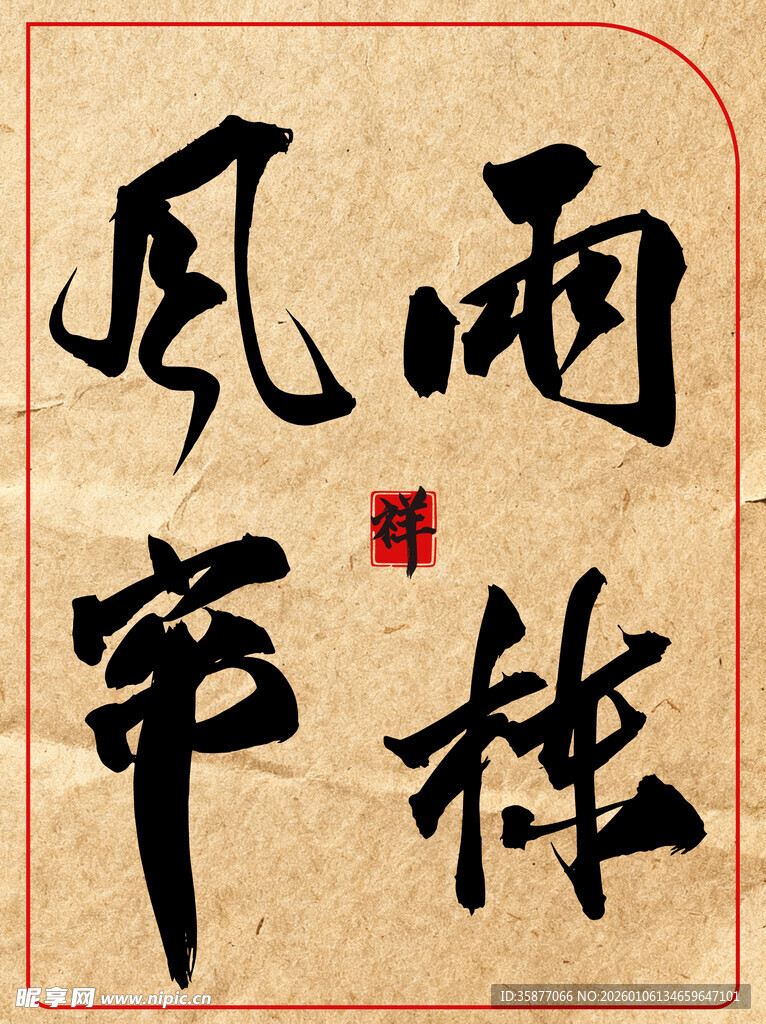 风雨
祥
帘
昵享网 www.nipic.cn
ID:35877066 NO:20260106134659647101